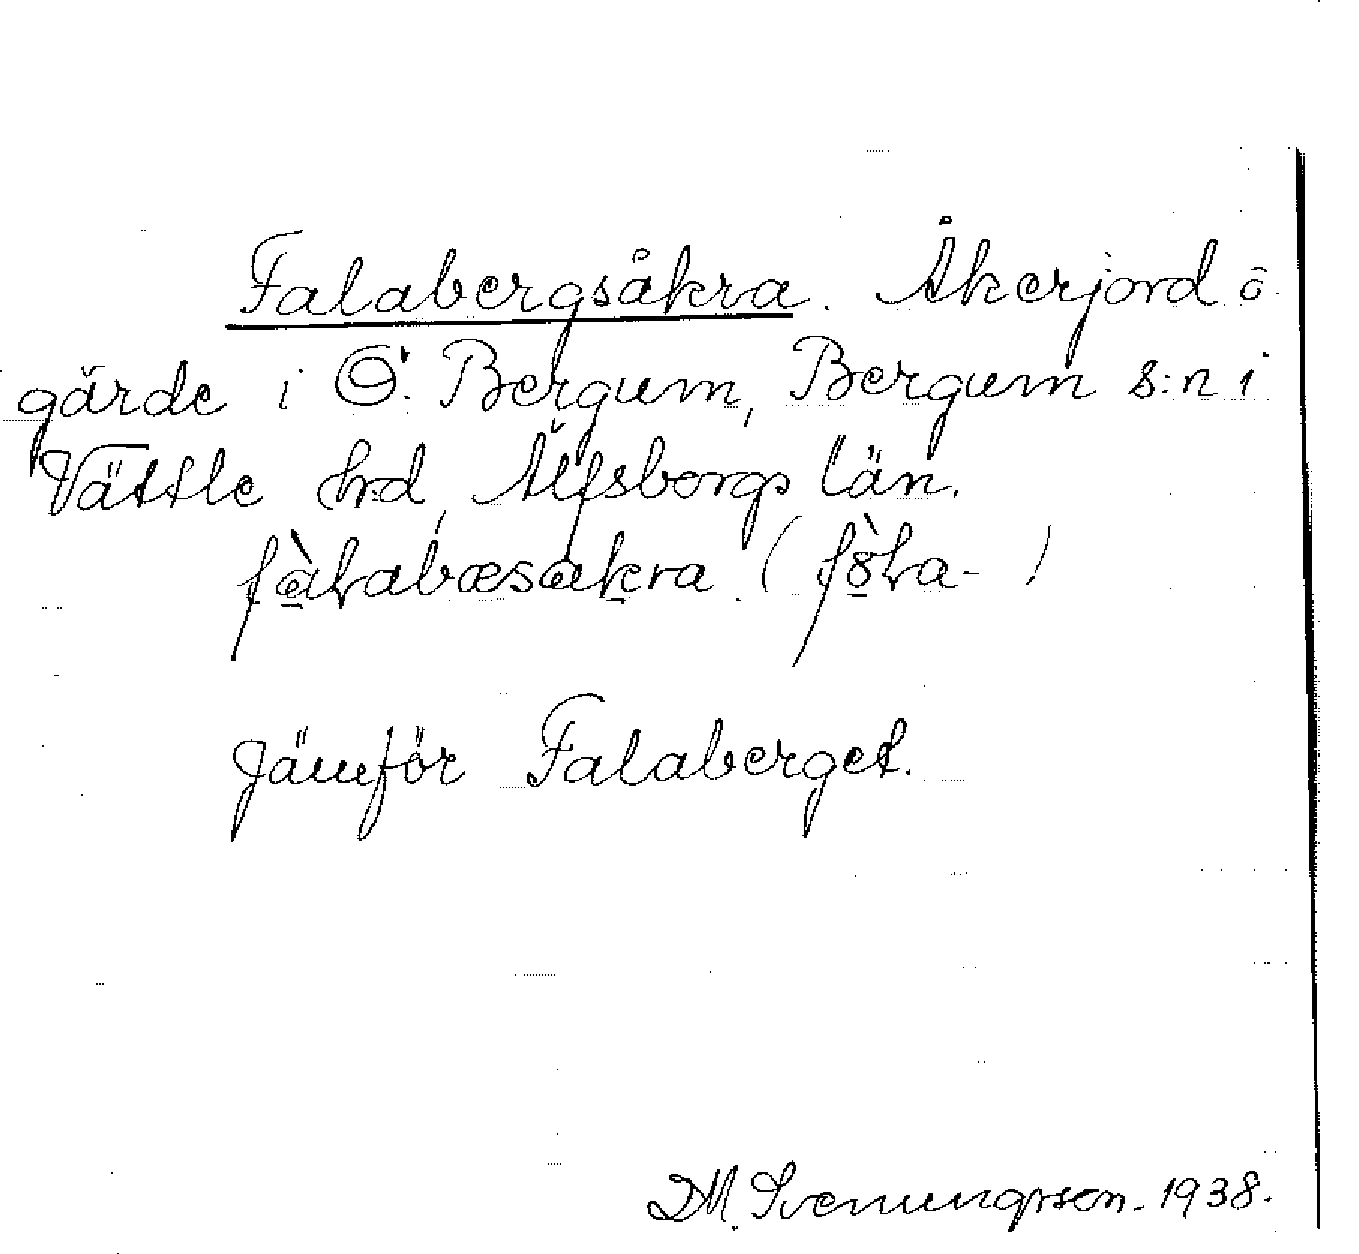 Falabergsåkra. Åkerjord o
gärde i Ö. Bergum, Bergum s:n i
Vättle hd, Älfsborgs län.
fàlabæsakra (fòla- )
Jämför Falaberget.
D.M. Svenungsson. 1938.